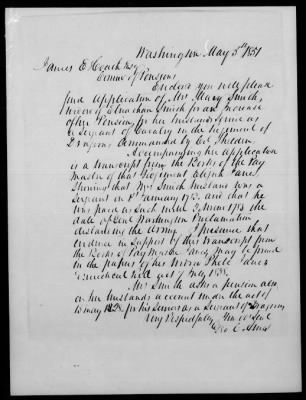 Washington May 5th 1851
James E Heath Esq
Comr of Pensions
Enclosed you will please
find application of Mrs Mary Smith,
widow of Elnathan Smith for an increase
of her Pension, for her husbands service as
a Sergeant of Cavalry in the Regiment of
Dragoons Commanded by Col Sheldon.
Accompanying her application
is a transcript from the Books of the Pay
master of that Regiment
Shewing that Mrs Smith husband was a
Sergeant on 1st January 1780. and that he
was paid as such until 3 June 1783 the
date of Genl Washingtons Proclamation
disbanding the Army. I presume that
evidence in support of this transcript from
the Books of Pay Master may be found
in the papers of her
act of 7 July 1838.
Mrs Smith asks a pension also
on her husbands account under the act of
15 May 1828, for his service as a Sergeant of Dragoons
Very Respectfully